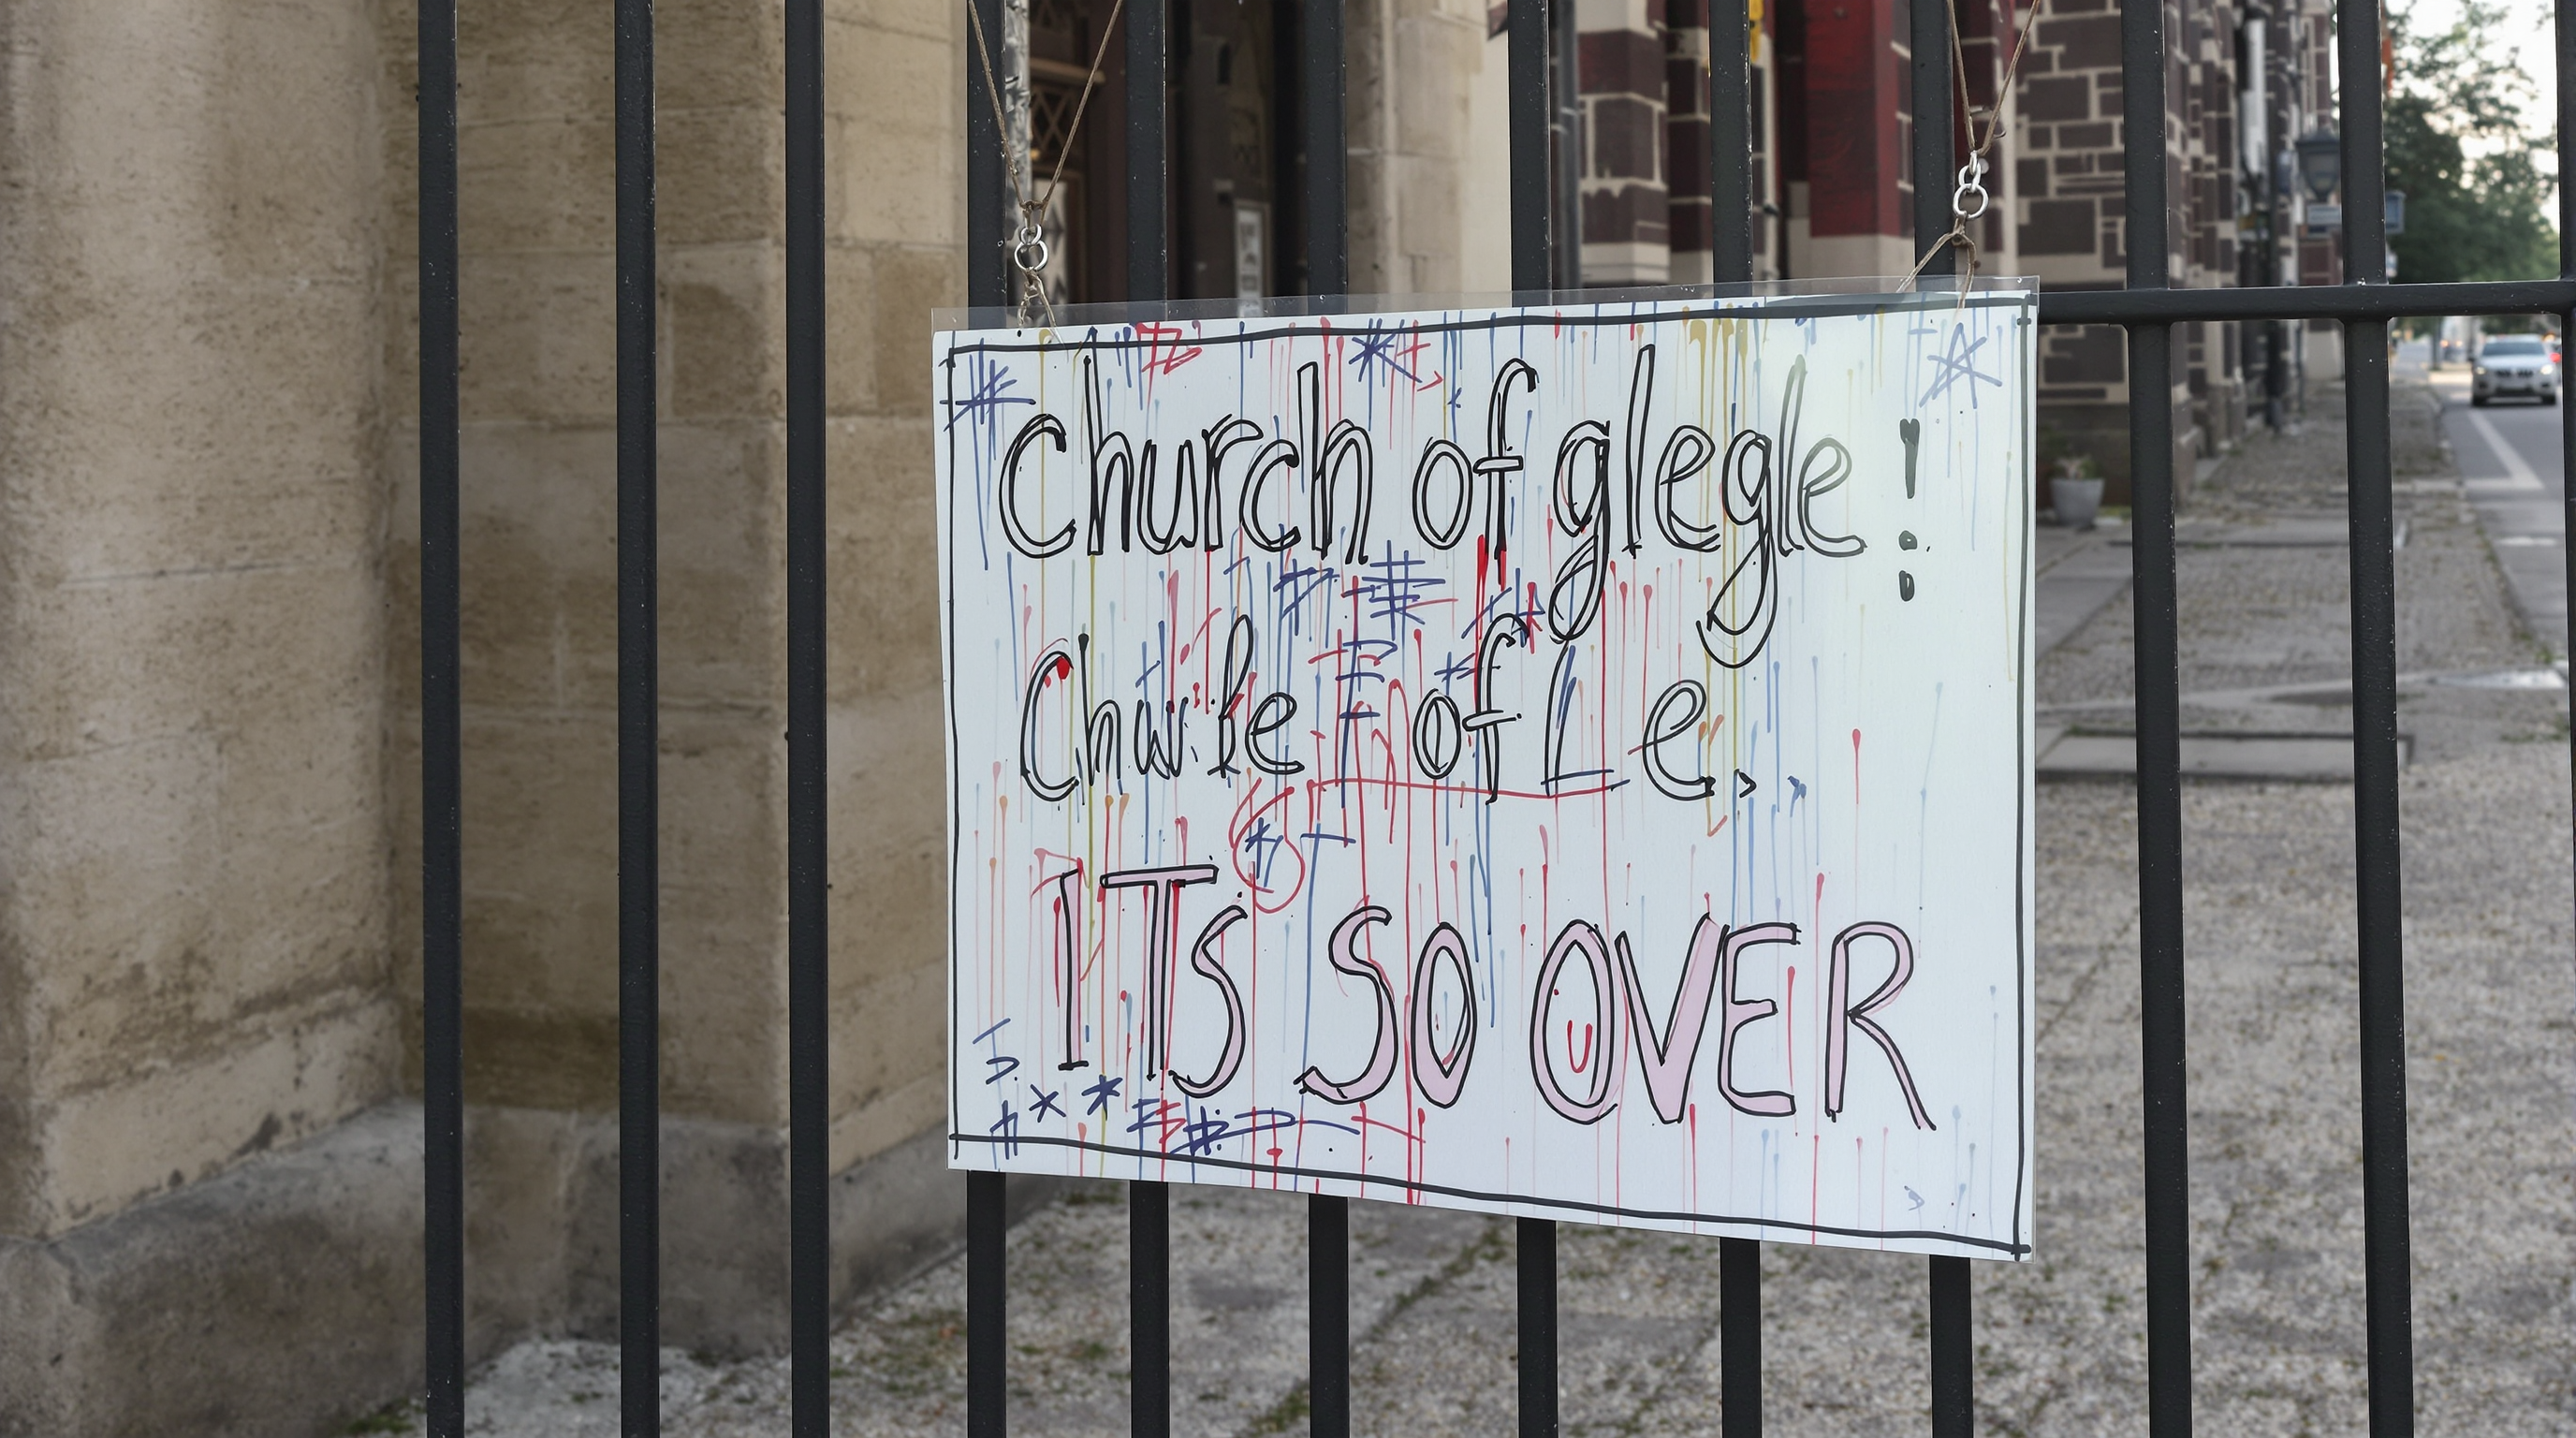 church of glegle!
of L e.
ITS SO OVER